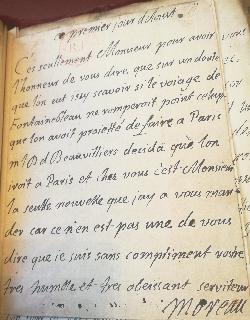 ce premier jour d'Aoust.
Ces seullement Monsieur pour avoir
l'honneur de vous dire, que sur un doute
que lon eut icy scavoir si le voiage de
Fontainebleau ne romperoit point celuy
que lon avoit projetté de faire a Paris
Mr D Beauvilliers decida que lon
iroit a Paris et chez vous c'est Monsieur
la seulle nouvelle que jay a vous man
der car ce n'en est pas une de vous
dire que je suis sans compliment votre
tres humble et tres obeissant serviteur
Moreau